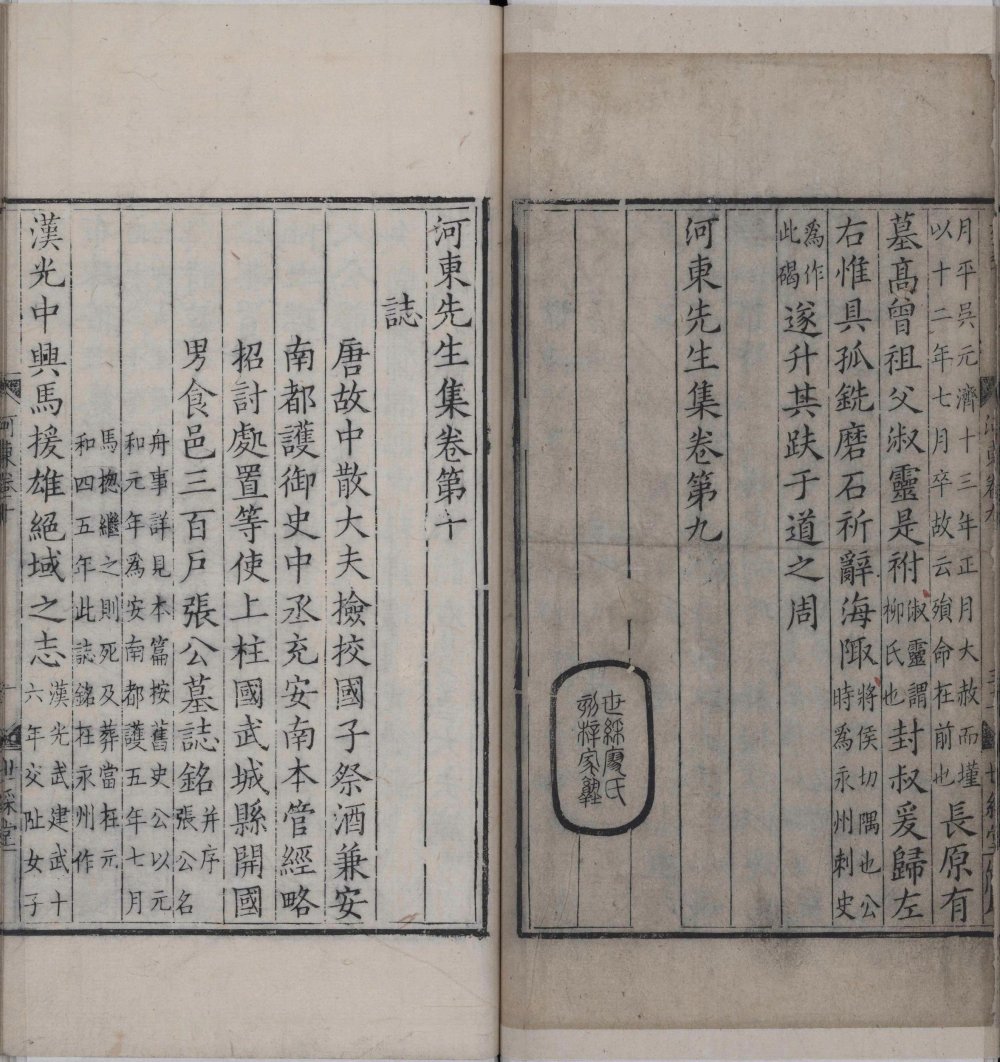 月平吳元濟十三年正月大赦而墐
以十二年七月卒故云殞命在前也
長原有
墓高曾祖父淑靈是祔
淑靈謂
柳氏也
封叔爰歸左
右惟具孤銑磨石祈辭海陬
將侯切隅也公
時為永州刺史
為作
此碣
遂升其趺于道之周
河東先生集卷第九
世綵廖氏
刻梓家塾
河東先生集卷第十
誌
唐故中散大夫撿挍國子祭酒兼安
南都護御史中丞充安南本管經略
招討處置等使上柱國武城縣開國
男食邑三百戶張公墓誌銘
并序
張公名
舟事詳見本篇按舊史公以元
和元年為安南都護五年七月
馬揔繼之則死及葬當在元
和四五年此誌銘在永州作
漢光中興馬援雄絕域之志
漢光武建武十
六年交阯女子
河東卷十
一
世綵堂